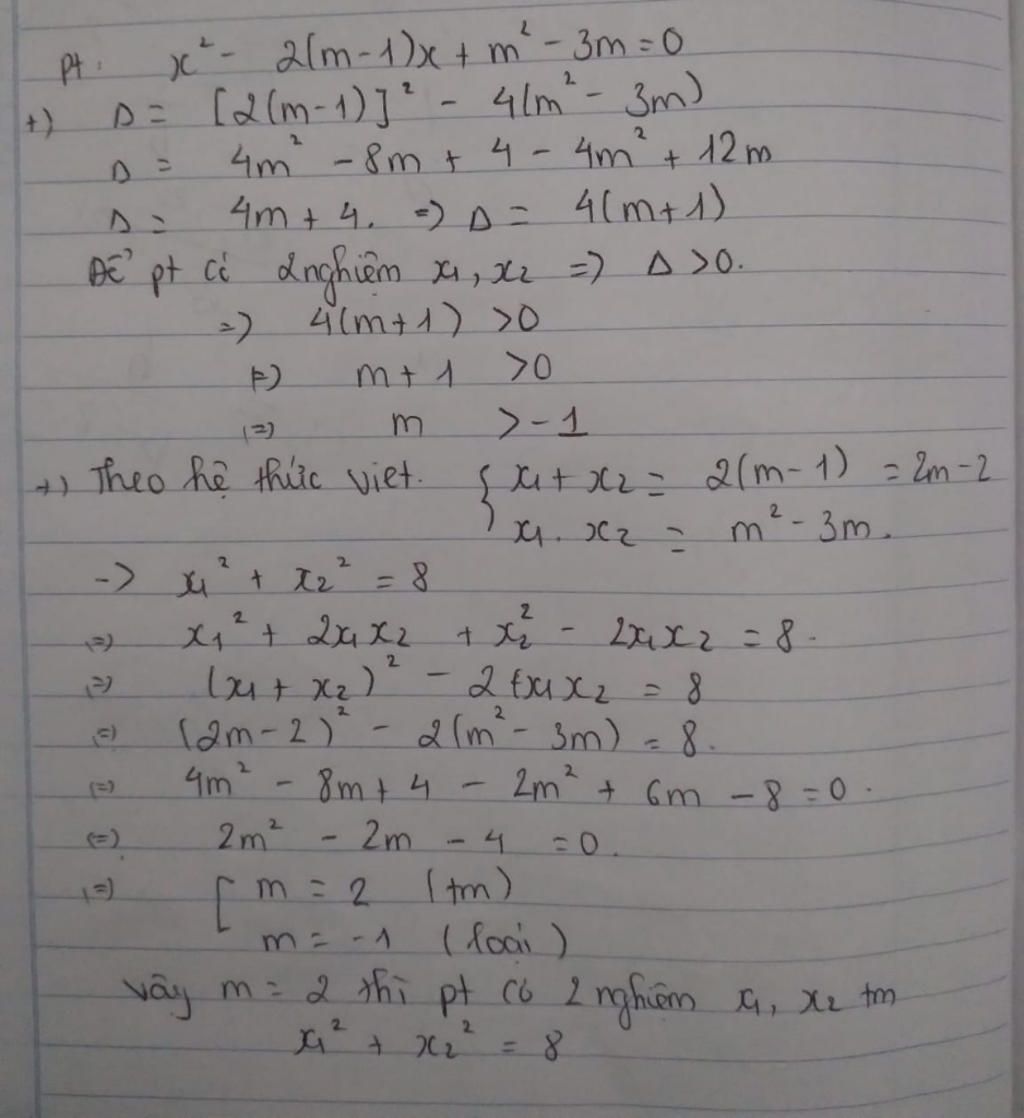 pt: x² - 2(m-1)x + m² - 3m = 0
+) Δ = [2(m-1)]² - 4(m² - 3m)
Δ = 4m² - 8m + 4 - 4m² + 12m
Δ = 4m + 4. => Δ = 4(m+1)
Để pt có 2 nghiệm x₁, x₂ => Δ > 0.
=> 4(m+1) > 0
(=) m + 1 > 0
(=) m > -1
+) Theo hệ thức viet. { x₁ + x₂ = 2(m-1) = 2m-2
x₁. x₂ = m² - 3m.
-> x₁² + x₂² = 8
(=) x₁² + 2x₁x₂ + x₂² - 2x₁x₂ = 8.
(=) (x₁ + x₂)² - 2x₁x₂ = 8
(=) (2m-2)² - 2(m² - 3m) = 8.
(=) 4m² - 8m + 4 - 2m² + 6m - 8 = 0.
(=) 2m² - 2m - 4 = 0.
(=) [ m = 2 (tm)
m = -1 (loại)
vậy m = 2 thì pt có 2 nghiệm x₁, x₂ tm
x₁² + x₂² = 8